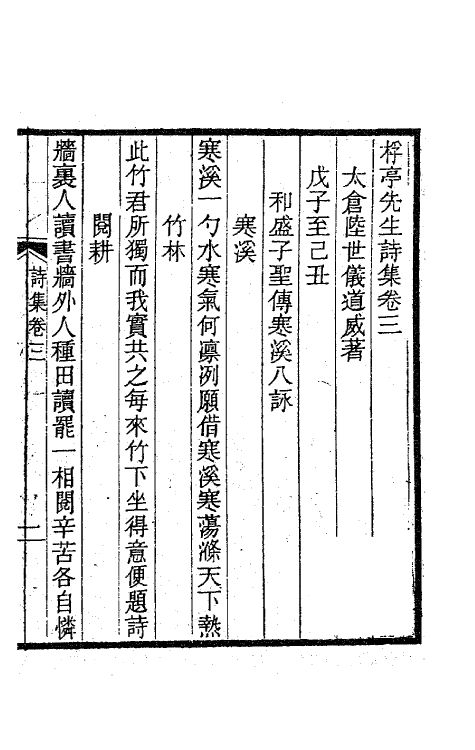 桴亭先生詩集卷三
太倉陸世儀道威著
戊子至己丑
和盛子聖傳寒溪八詠
寒溪
寒溪一勺水寒氣何凛冽願借寒溪寒蕩滌天下熱
竹林
此竹君所獨而我實共之每來竹下坐得意便題詩
閱耕
牆裏人讀書牆外人種田讀罷一相閱辛苦各自憐
詩集卷三
一